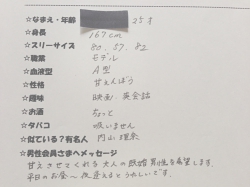 ☆なまえ・年齢 25才
☆身長 167cm
☆スリーサイズ 80. 57. 82
☆職業 モデル
☆血液型 A型
☆性格 甘えんぼう
☆趣味 映画 英会話
☆お酒 ちょっと
☆タバコ 吸いません
☆似ている？有名人 内山理奈
☆男性会員さまへメッセージ
甘えさせてくれる大人の既婚男性を希望します.
平日のお会〜夜逢えるとうれしいです.